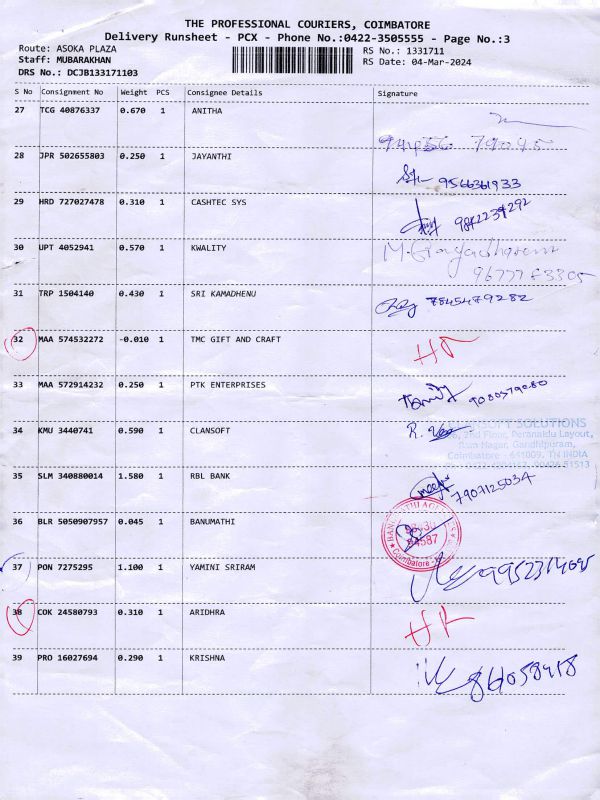 THE PROFESSIONAL COURIERS, COIMBATORE
Delivery Runsheet - PCX - Phone No.:0422-3505555 - Page No.:3
Route: ASOKA PLAZA
RS No.: 1331711
Staff: MUBARAKHAN
RS Date: 04-Mar-2024
DRS No.: DCJB133171103
S No Consignment No Weight PCS Consignee Details Signature
27 TCG 40876337 0.670 1 ANITHA
28 JPR 502655803 0.250 1 JAYANTHI 9566361933
29 HRD 727027478 0.310 1 CASHTEC SYS 9842234292
30 UPT 4052941 0.570 1 KWALITY
31 TRP 1504140 0.430 1 SRI KAMADHENU 7845479282
32 MAA 574532272 -0.010 1 TMC GIFT AND CRAFT
33 MAA 572914232 0.250 1 PTK ENTERPRISES 9080579080
34 KMU 3440741 0.590 1 CLANSOFT R.
SOLUTIONS
2nd Floor, Peranaidu Layout,
Ram Nagar, Gandhipuram,
Coimbatore - 641009. TN INDIA
35 SLM 340880014 1.580 1 RBL BANK 7907125034
36 BLR 5050907957 0.045 1 BANUMATHI
Coimbatore
37 PON 7275295 1.100 1 YAMINI SRIRAM
38 COK 24580793 0.310 1 ARIDHRA
39 PRO 16027694 0.290 1 KRISHNA